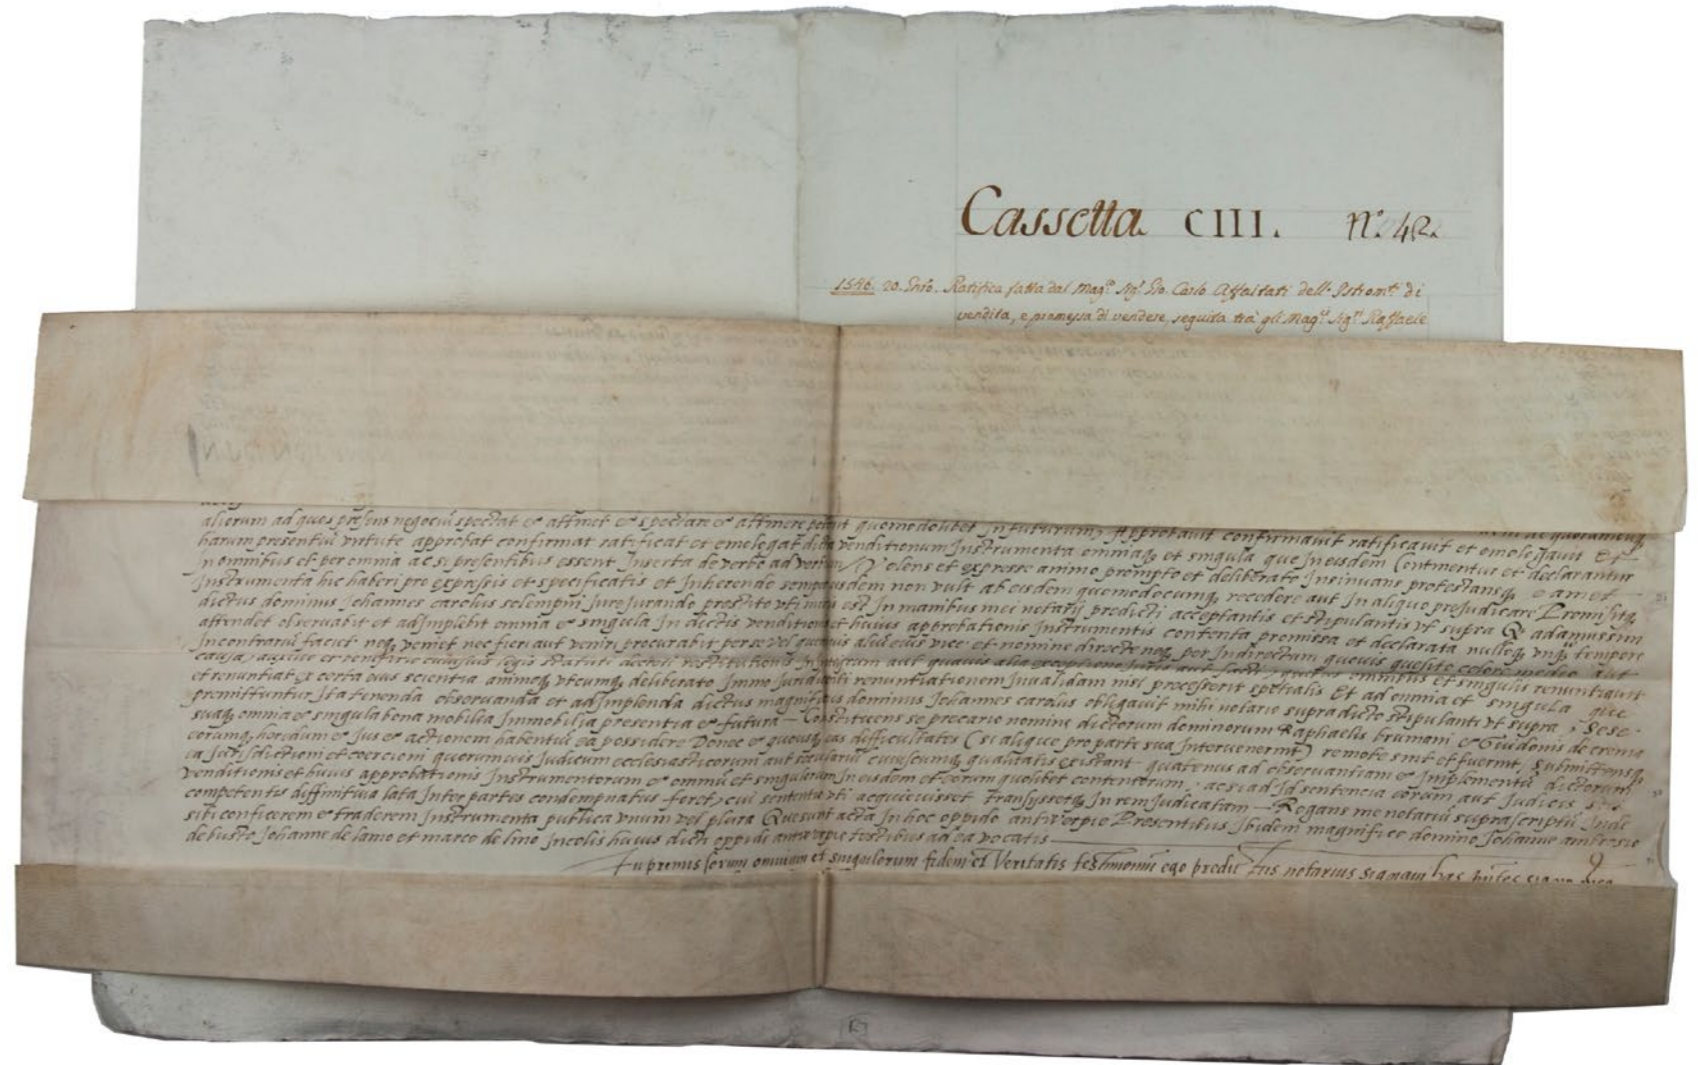 Cassetta CIII. N.º 42.
1546. 20. Ratifica fatta dal Mag.co Sig.r Gio. Carlo Affaitati dell'Istrom.to di
vendita, e promessa di vendere, seguita trà gli Mag.ci Sig.ri Raffaele
aliorum ad quos presens negociũ spectat et attinet et spectare et attinere poterit quomodolibet in futurum, Approbavit confirmavit ratificavit et emologavit Et
harum presentiũ virtute approbat confirmat ratificat et emologat dicta venditionum Instrumenta omniaq, et singula que in eisdem Continentur et declarantur
in omnibus et per omnia ac si presentibus essent Inserta de verbo ad verbum Volens et expresse animo prompto et deliberato Insinuans protestansq,
Instrumenta hic haberi pro expressis et specificatis et Inherendo eisdem non vult ab eisdem quomodocumq, recedere aut In aliquo prejudicare Promisitq,
dictus dominus Johannes carolus solempni Jurejurando prestito uti est In manibus mei notarij predicti acceptantis et stipulantis ut supra adamussim
attendet observabit et adimplebit omnia et singula In dictis venditionum et huius approbationis Instrumentis contenta promissa et declarata nulloq, unq, tempore
In contrariũ faciet neq, veniet nec fieri aut veniri procurabit per se vel quemvis aliũ eius vice et nomine directe neq, per Indirectam quovis quesito colore medio aut
causa, auxilio et beneficio cuiusvis legis statuti decreti restitutionis In integrum aut quavis alia exceptione Juris aut facti, quibus omnibus et singulis renuntiavit
et renuntiat ex certa eius scientia animoq, utcumq, deliberato Immo renuntiationem Invalidam nisi precesserit spetialis Et ad omnia et singula que
premittuntur Ita tenenda observanda et adimplenda dictus magnificus dominus Johannes carolus obligavit mihi notario supradicto stipulanti ut supra, sese
suaq, omnia et singula bona mobilia Immobilia presentia et futura – Constituens se precario nomine dictorum dominorum Raphaelis brumani et Guidonis de crema
eorumq, heredum et Jus et actionem habentiũ ea possidere Donec et quousq, eas difficultates (si alique pro parte sua Intervenerint) remote sint et fuerint, Submittensq,
Jurisdictioni et coercioni quorumvis Judicum ecclesiasticorum aut secularium cuiuscumq, qualitatis existant quatenus ad observantiam et Implementũ dictorum
venditionis et huius approbationis Instrumentorum et omniũ et singulorum In eisdem et eorum quolibet contentorum, ac si ad Id sentencia eorum aut Judicis
competentis diffinitiva lata Inter partes condempnatus foret, cui sententie uti acquievisset transissetq, In rem Judicatam – Rogans me notariũ suprascriptũ Inde
sibi conficerem et traderem Instrumenta publica unum vel plura Que sunt acta In hoc oppido antwerpie Presentibus Ibidem magnifico domino Johanne ambrosio
de busto Johanne de lamo et marco de lino Incolis huius dicti oppidi antwerpie testibus ad ea vocatis
In premissorum omnium et singulorum fidem et Veritatis testimoniũ ego predictus notarius signavi has